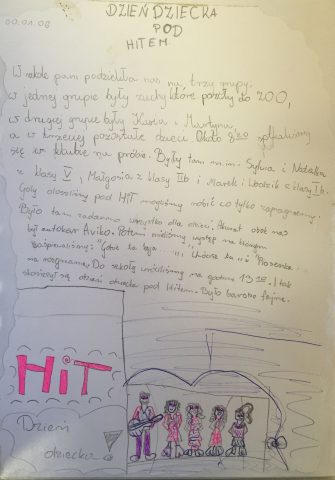 00.01.08
DZIEŃ DZIECKA
POD
HITEM
W szkole pani podzieliła nas na trzy grupy:
w jednej grupie były zuchy które poszły do ZOO,
w drugiej grupie były Kasia i Martyna,
a w trzeciej pozostałe dzieci. Około 8³⁰
się w klubie na próbie. Były tam m.in.: Sylwia i Natalia
z klasy V, Małgosia z klasy IIb i Marek i z klasy Ib.
Gdy doszliśmy pod HIT mogliśmy robić co tylko zapragniemy.
Było tam za darmo wszystko dla dzieci. Akurat obok nas
był autokar Aviko. Potem mieliśmy występ na którym
zaśpiewaliśmy: "Gdzie ta
na Do szkoły wróciliśmy na godzinę 13 i tak
skończył się dzień dziecka pod Hitem. Było bardzo fajnie.
HiT
Dzień
dziecka!